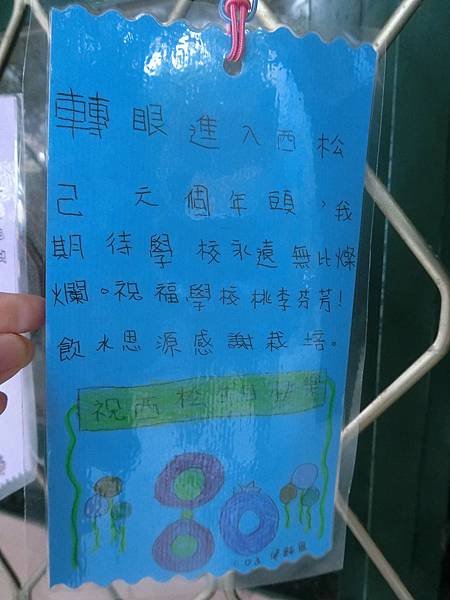 轉眼進入西松
己 元個年頭，我
期待學校永遠無比燦
爛。祝福學校桃李芬芳！
飲水思源感謝栽培。
祝西松 快樂